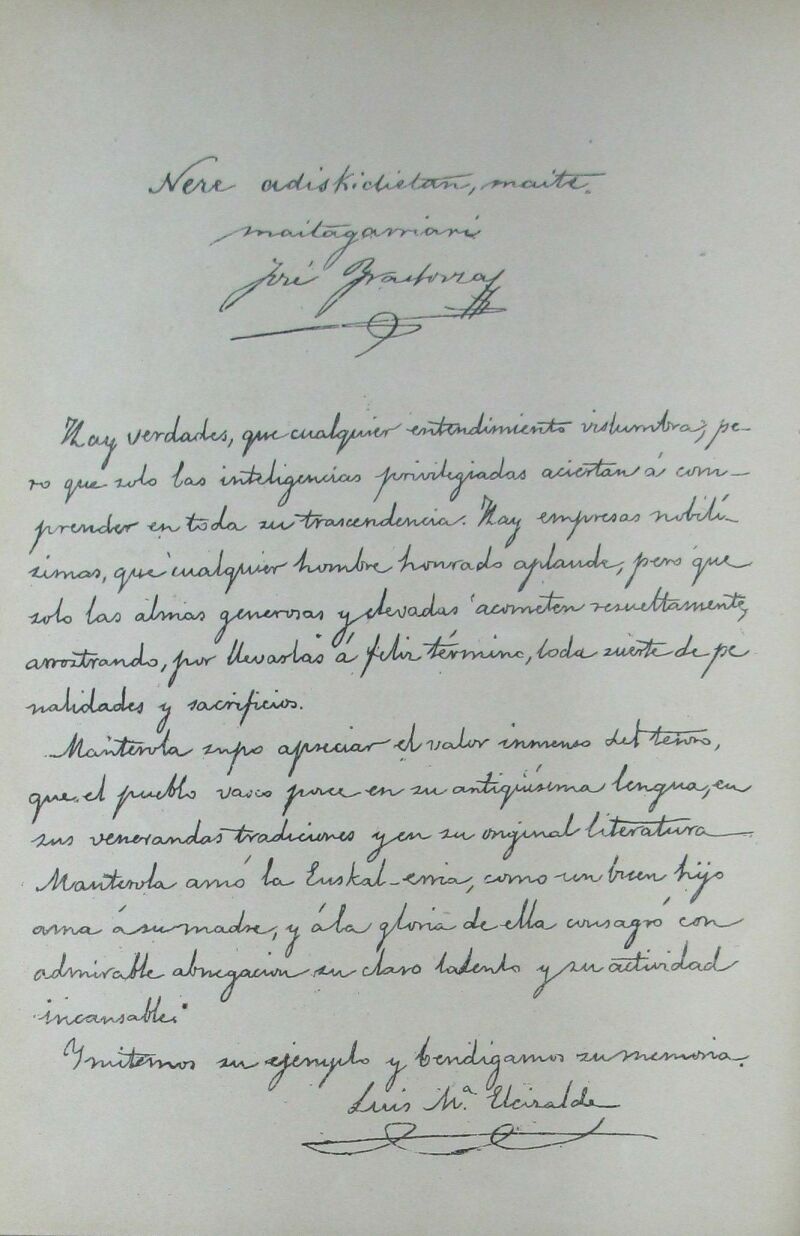 Nere adiskidietan, maite.
maitagarriari
José
Hay verdades, que cualquier entendimiento vislumbra, pe-
ro que solo las inteligencias privilegiadas aciertan á com-
prender en toda su trascendencia. Hay empresas nobilí-
simas, que cualquier hombre honrado aplaude, pero que
solo las almas generosas y elevadas acometen resueltamente,
arrostrando, por llevarlas á feliz término, toda suerte de pe
nalidades y sacrificios.
Manterola supo apreciar el valor inmenso del tesoro,
que el pueblo vasco posee en su antiquísima lengua, en
sus venerandas tradiciones y en su original literatura
Manterola amó la Euskal-erria, como un buen hijo
ama á su madre, y á la gloria de ella consagró con
admirable abnegacion su claro talento y su actividad
incansable.
Ymitemos su ejemplo y bendigamos su memoria.
Luis M.ª Elcizalde